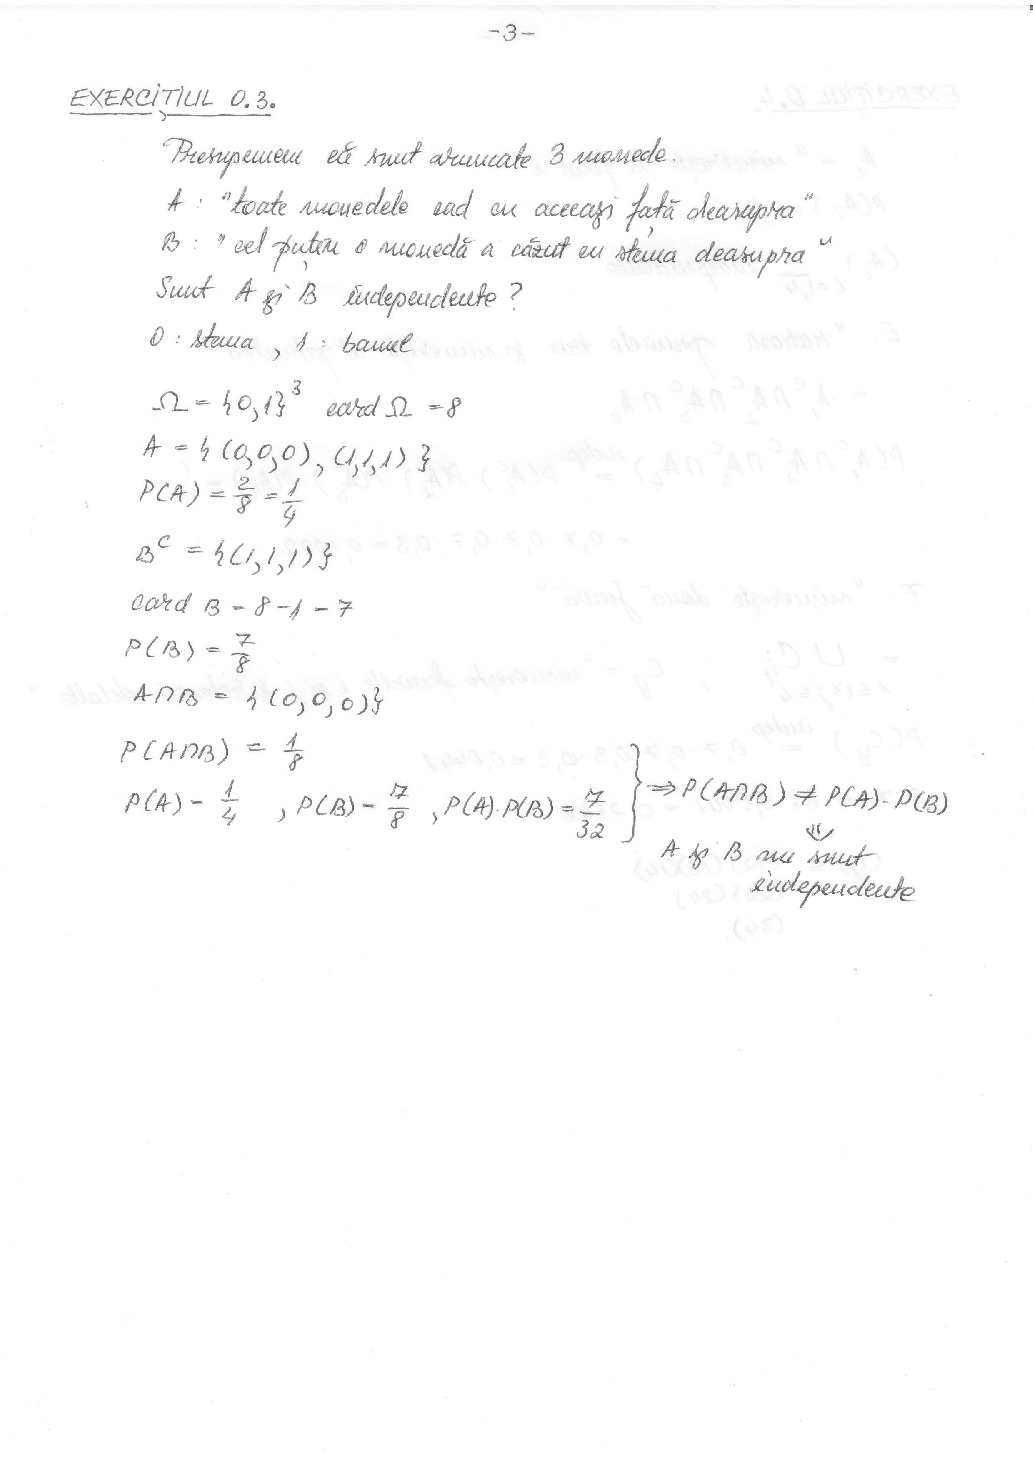 -3-
EXERCIȚIUL 0.3.
Presupunem că sunt aruncate 3 monede.
A : "toate monedele cad cu aceeași față deasupra"
B : "cel puțin o monedă a căzut cu stema deasupra"
Sunt A și B independente ?
0 : stema , 1 : banul
Ω = {0,1}³ card Ω = 8
A = {(0,0,0), (1,1,1)}
P(A) = 2/8 = 1/4
Bᶜ = {(1,1,1)}
card B = 8 - 1 = 7
P(B) = 7/8
A∩B = {(0,0,0)}
P(A∩B) = 1/8
P(A) = 1/4 , P(B) = 7/8 , P(A)·P(B) = 7/32 } ⇒ P(A∩B) ≠ P(A)·P(B)
⇓
A și B nu sunt
independente